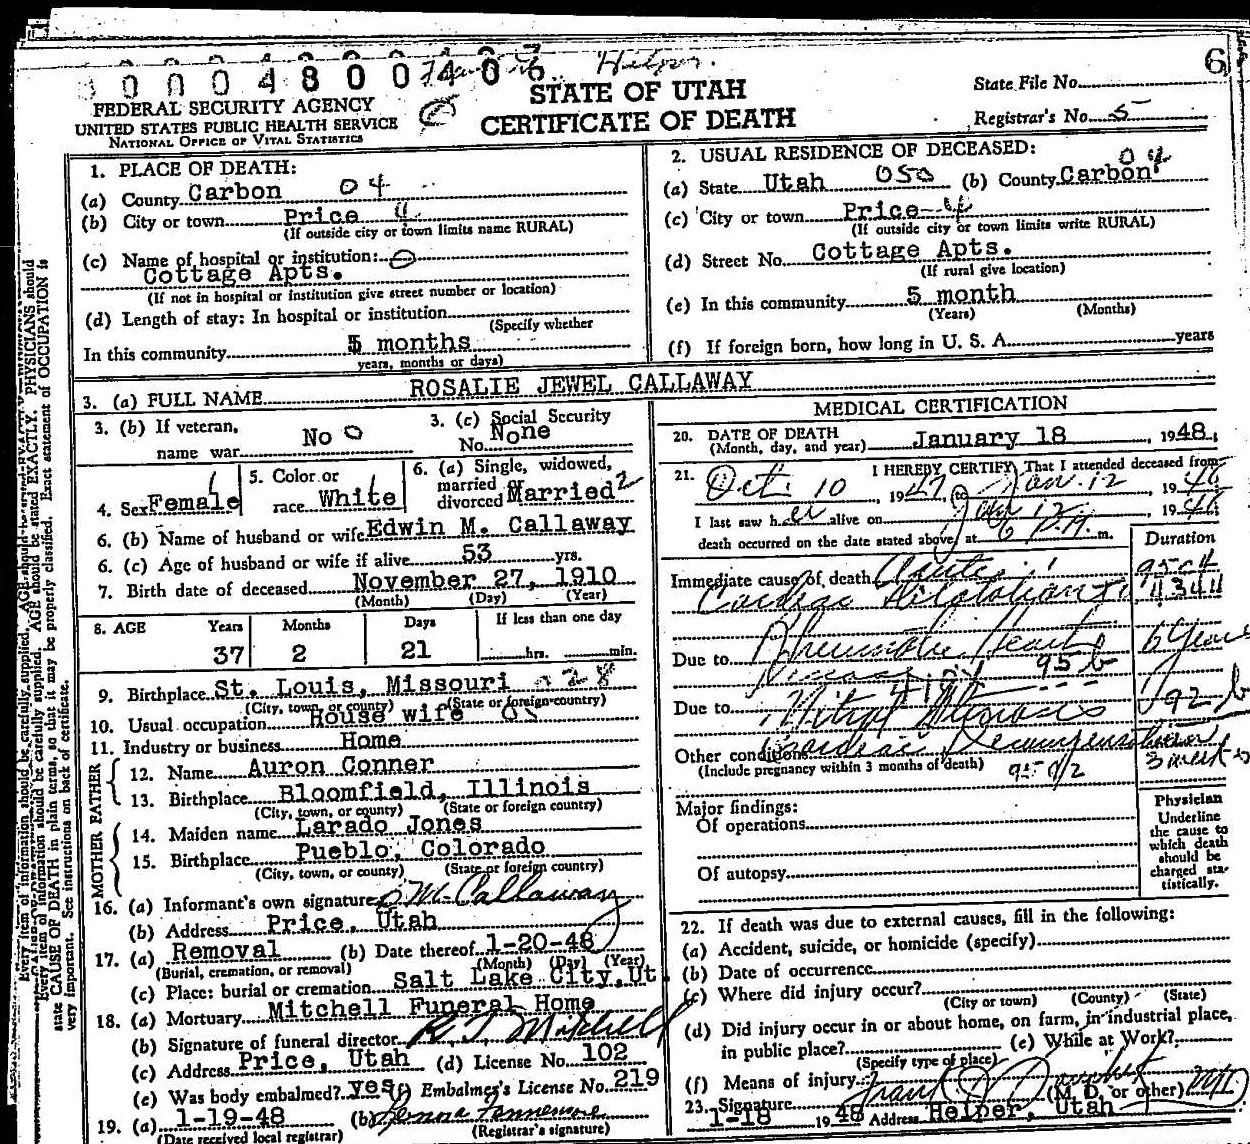 0 0 0 4 8 0 0 4 0 6 Helper. 6
FEDERAL SECURITY AGENCY
UNITED STATES PUBLIC HEALTH SERVICE
NATIONAL OFFICE OF VITAL STATISTICS
STATE OF UTAH
CERTIFICATE OF DEATH
State File No.
Registrar's No. 5
1. PLACE OF DEATH:
(a) County Carbon 04
(b) City or town Price
(If outside city or town limits name RURAL)
(c) Name of hospital or institution:
Cottage Apts.
(If not in hospital or institution give street number or location)
(d) Length of stay: In hospital or institution
(Specify whether
In this community 5 months
years, months or days)
2. USUAL RESIDENCE OF DECEASED:
(a) State Utah 050 (b) County Carbon 04
(c) City or town Price
(If outside city or town limits write RURAL)
(d) Street No. Cottage Apts.
(If rural give location)
(e) In this community 5 month
(Years) (Months)
(f) If foreign born, how long in U. S. A. years
3. (a) FULL NAME ROSALIE JEWEL CALLAWAY
3. (b) If veteran, name war No 0
3. (c) Social Security No. None
4. Sex Female 1
5. Color or race White 1
6. (a) Single, widowed, married or divorced Married 2
6. (b) Name of husband or wife Edwin M. Callaway
6. (c) Age of husband or wife if alive 53 yrs.
7. Birth date of deceased November 27, 1910
(Month) (Day) (Year)
8. AGE Years Months Days If less than one day
37 2 21 hrs. min.
9. Birthplace St. Louis, Missouri 28
(City, town, or county) (State or foreign country)
10. Usual occupation House wife
11. Industry or business Home
FATHER
12. Name Auron Conner
13. Birthplace Bloomfield, Illinois
(City, town, or county) (State or foreign country)
MOTHER
14. Maiden name Larado Jones
15. Birthplace Pueblo, Colorado
(City, town, or county) (State or foreign country)
16. (a) Informant's own signature M. Callaway
(b) Address Price, Utah
17. (a) Removal (b) Date thereof 1-20-48
(Burial, cremation, or removal) (Month) (Day) (Year)
(c) Place: burial or cremation Salt Lake City, Ut.
18. (a) Mortuary Mitchell Funeral Home
(b) Signature of funeral director R. T. Mitchell
(c) Address Price, Utah (d) License No. 102
(e) Was body embalmed? yes Embalmer's License No. 219
19. (a) 1-19-48 (b)
(Date received local registrar) (Registrar's signature)
MEDICAL CERTIFICATION
20. DATE OF DEATH January 18, 1948;
(Month, day, and year)
21. I HEREBY CERTIFY That I attended deceased from
Oct. 10, 1947, to Jan. 12, 1948
I last saw her alive on Jan 12, 1948
death occurred on the date stated above, at 6 P.M. m.
Duration
Immediate cause of death Acute
Cardiac Dilatation
Due to Rheumatic Heart 6 Years
95 b
Due to Mitral Stenosis 92 b
Other conditions Cardiac Decompensation 3 weeks
(Include pregnancy within 3 months of death)
Major findings:
Of operations
Of autopsy
Physician
Underline
the cause to
which death
should be
charged sta-
tistically.
22. If death was due to external causes, fill in the following:
(a) Accident, suicide, or homicide (specify)
(b) Date of occurrence
(c) Where did injury occur?
(City or town) (County) (State)
(d) Did injury occur in or about home, on farm, in industrial place,
in public place? (e) While at Work?
(Specify type of place)
(f) Means of injury
23. Signature (M. D. or other) M.D.
1-18 1948 Address Helper, Utah
Every item of information should be carefully supplied. AGE should be stated EXACTLY. PHYSICIANS should
state CAUSE OF DEATH in plain terms, so that it may be properly classified. Exact statement of OCCUPATION is
very important. See instructions on back of certificate.